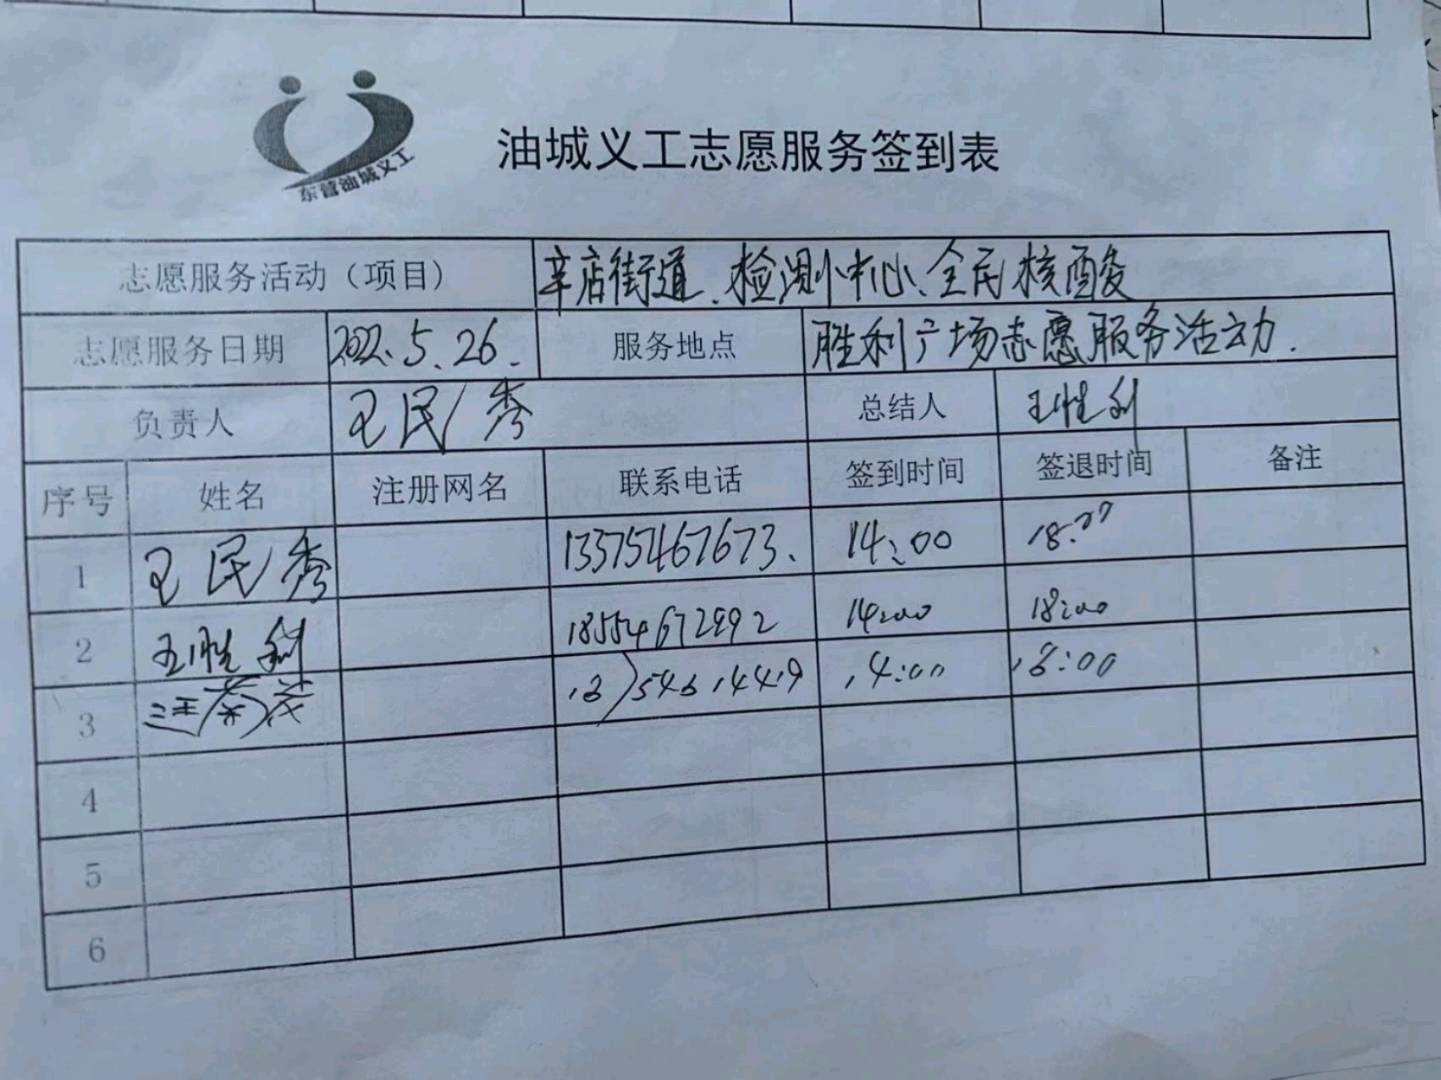 东营油城义工
油城义工志愿服务签到表
志愿服务活动（项目） 辛店街道、检测中心、全民核酸
志愿服务日期 2022.5.26. 服务地点 胜利广场志愿服务活动.
负责人 王民秀 总结人 王胜利
序号 姓名 注册网名 联系电话 签到时间 签退时间 备注
1 王民秀 13375467673. 14:00 18:00
2 王胜利 18554672992 14:00 18:00
3 14:00 18:00
4
5
6